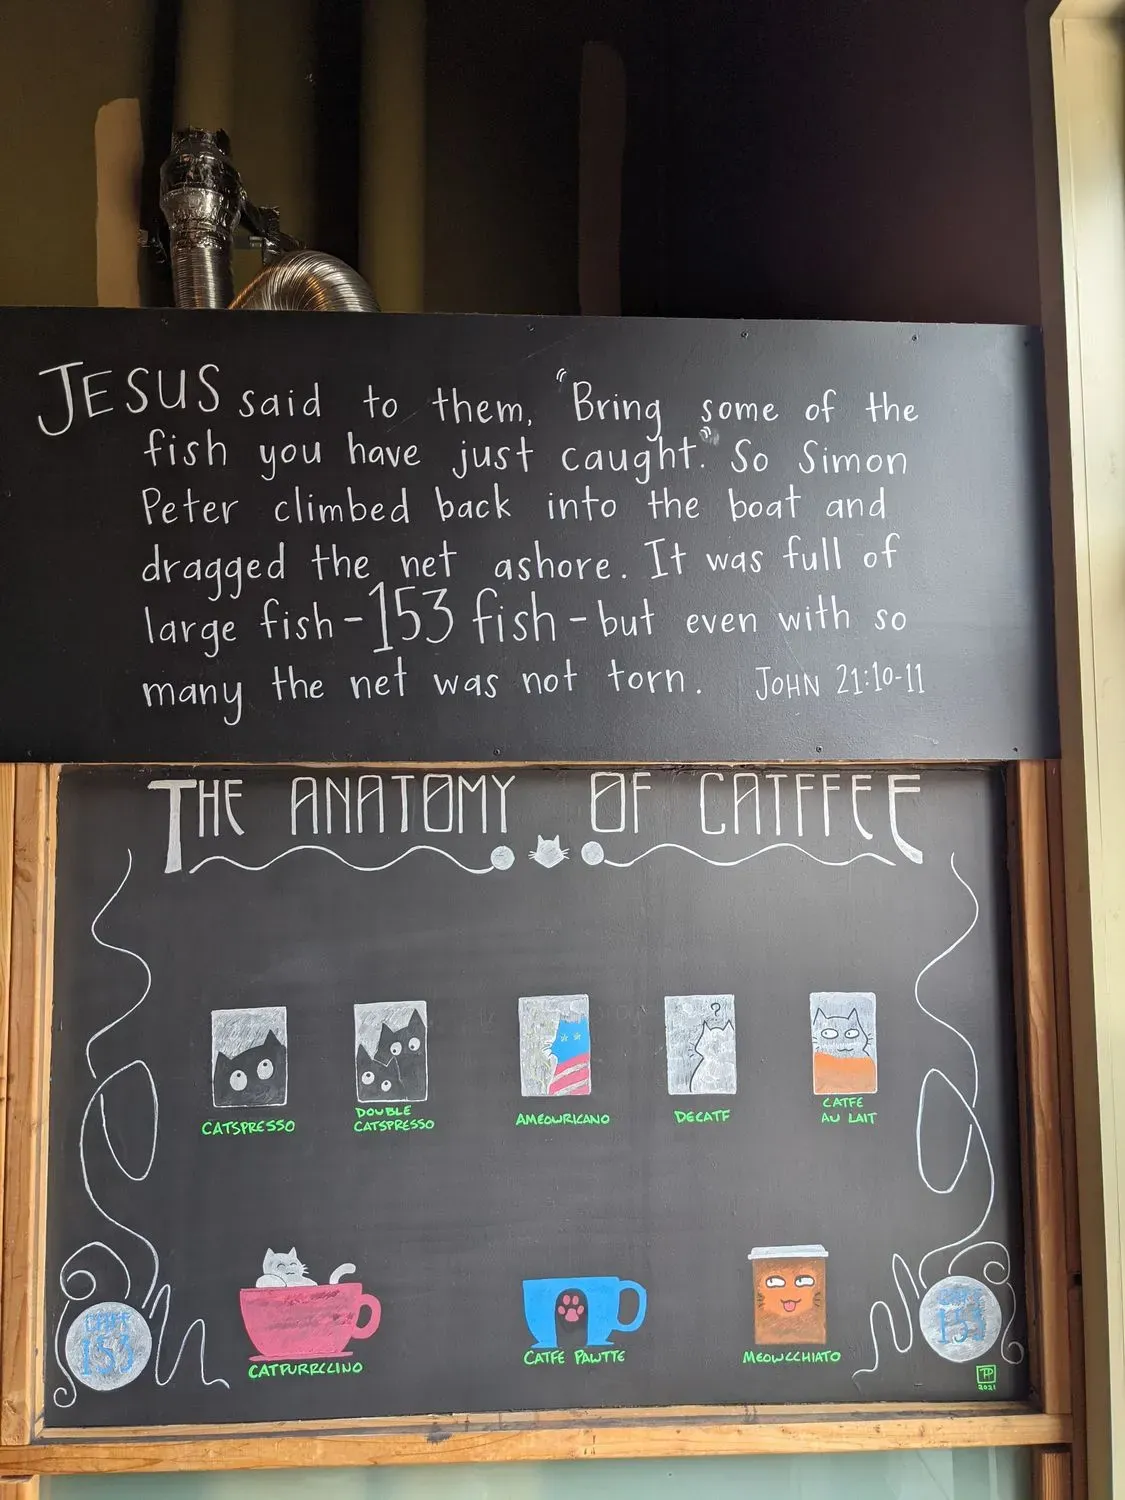 JESUS said to them, "Bring some of the
fish you have just caught." So Simon
Peter climbed back into the boat and
dragged the net ashore. It was full of
large fish-153 fish-but even with so
many the net was not torn. JOHN 21:10-11
THE ANATOMY OF CATFFEE
?
CATSPRESSO
DOUBLE
CATSPRESSO
AMEOWRICANO
DECATF
CATFE
AU LAIT
CATPURRCCINO
CATFE PAWTTE
MEOWCCHIATO
153
153
TP
2021